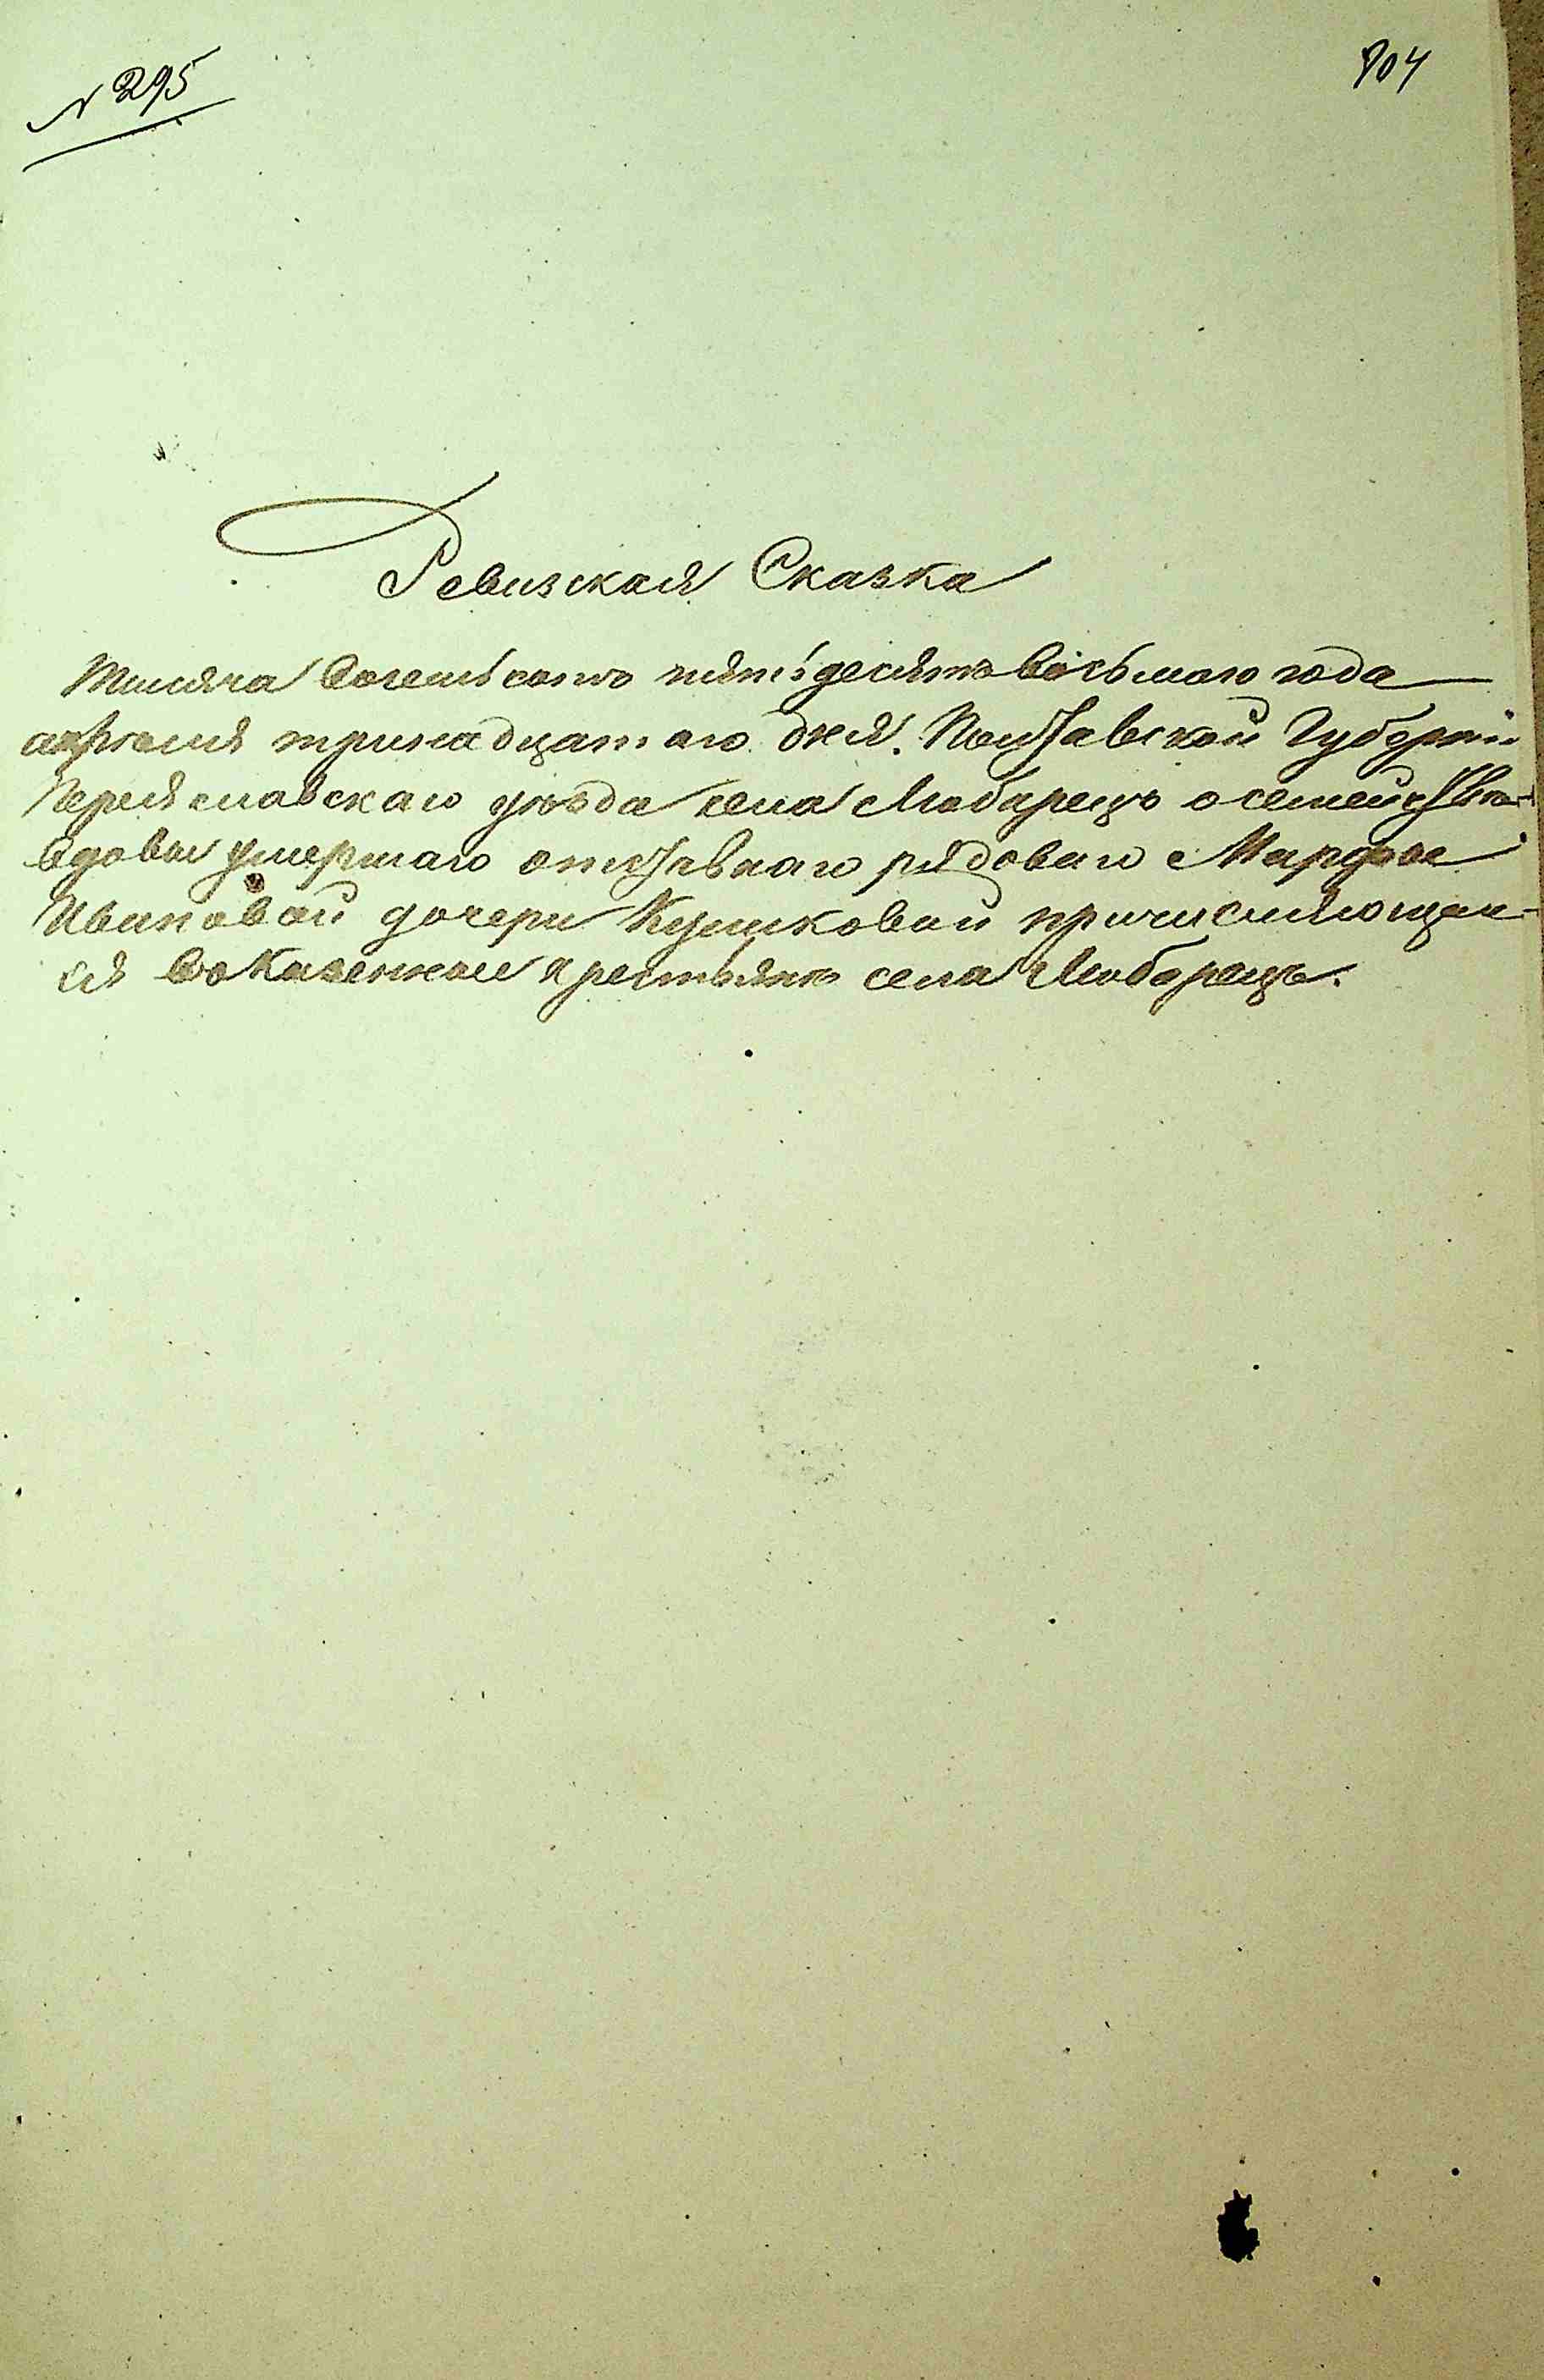 N 295
804
Ревизская Сказка
Тысяча восемьсотъ пятьдесятъ восьмаго года
апрѣля тринадцатаго дня. Полтавской Губерніи
Переяславскаго уѣзда села Любарецъ о семействѣ
вдовы умершаго отставнаго рядоваго Марфы
Ивановой дочери Куликовой причисляющей-
ся въ Казенные крестьяне села Любарецъ.